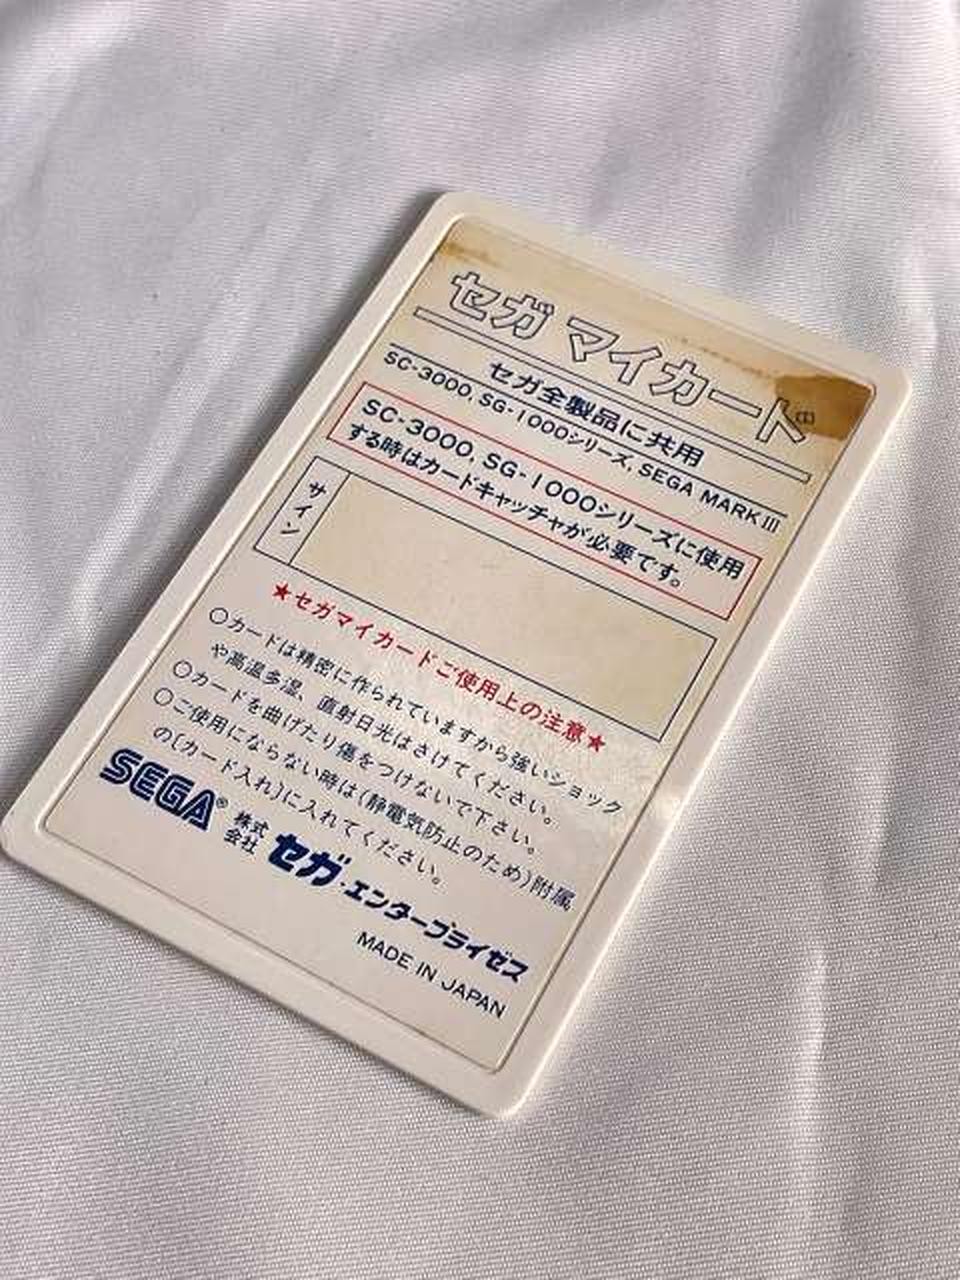 セガ マイカード
セガ全製品に共用
SC-3000, SG-1000シリーズ, SEGA MARKⅢ
SC-3000, SG-1000シリーズに使用
する時はカードキャッチャが必要です。
サイン
★セガマイカードご使用上の注意★
○カードは精密に作られていますから強いショック
や高温多湿、直射日光はさけてください。
○カードを曲げたり傷をつけないで下さい。
○ご使用にならない時は(静電気防止のため)附属
の(カード入れ)に入れてください。
SEGA® 株式会社 セガ・エンタープライゼス
MADE IN JAPAN